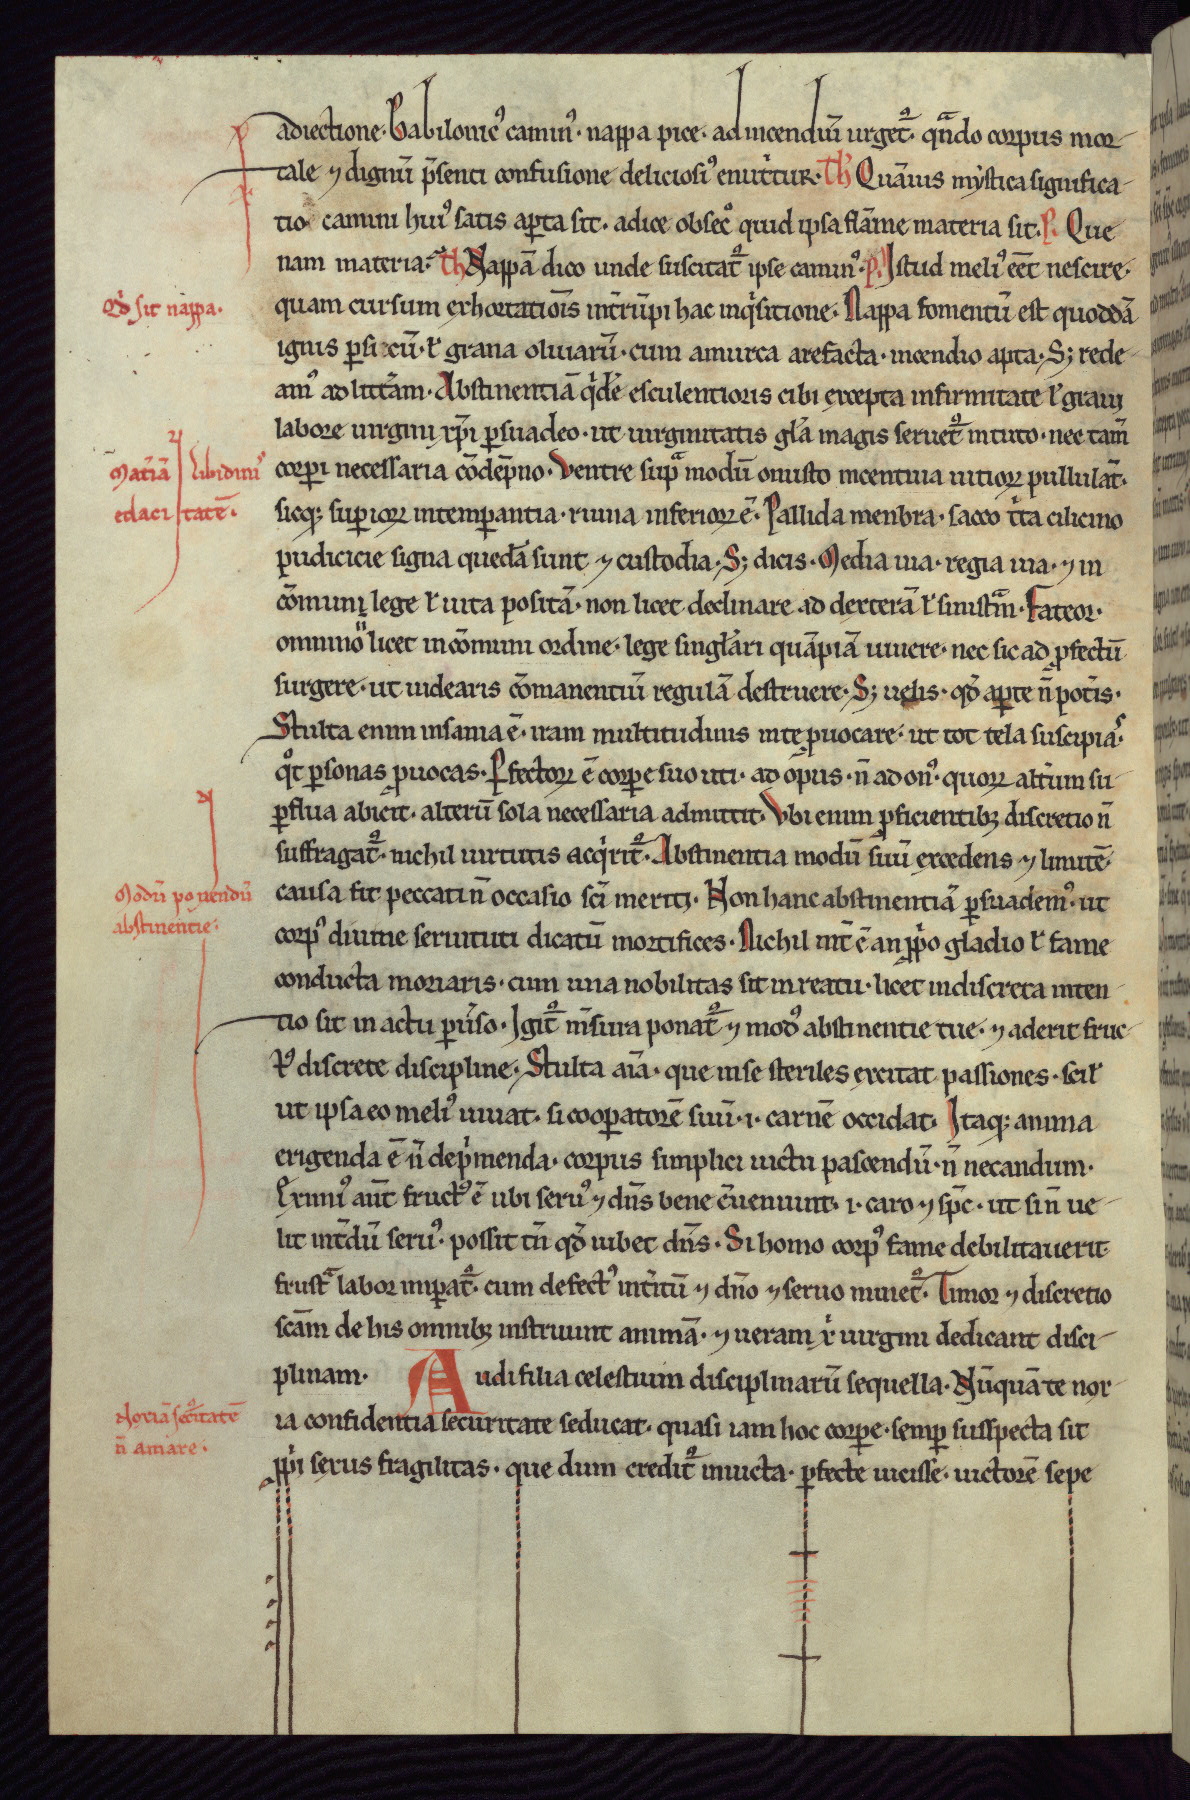 adiectione. Babilonic᷒ camin᷒. nappa pice. ad incendiū urget᷑. qn̄do corpus mor-
tale ⁊ dignū p̄senti confusione deliciosi᷒ enut̍tur. Th̍ Quāuis mẏstica significa-
tio camini hui᷒ satis aꝑta sit. adice obsec̊ quid ipsa flāme materia sit. P. Que
nam materia. Th̍ Nappā dico unde suscitat᷑ ipse camin᷒. P. Istud meli᷒ eēt nescire.
Qd̍ sit nappa.
quam cursum exhortatiōīs int̄rūpi hac inq̍sitione. Nappa fomentū est quoddā
ignis ꝑsicū. ł grana oliuarū. cum amurca arefacta. incendio apta. Sꝫ rede-
am᷒ ad litt̄am. Abstinentiā q̍dē esculentioris cibi excepta infirmitate ł graui
labore uirgini xp̄i ꝑsuadeo. ut uirginitatis gl̄a magis seruet᷑ in tuto. nec tam̄
Mat̄iā libidinis᷒
corꝑi necessaria cōdēpno. Ventre sup̄ modū onusto incentiua uitioꝝ pullulāt.
edacitatē.
sicqꝫ suꝑioꝝ intemꝑantia. ruina inferioꝝ ē. Pallida menbra. sacco t̍ta cilicino
pudicicie signa quedā sunt ⁊ custodia. Sꝫ dicis. Media uia. regia uia. ⁊ in
cōmuni lege ł uita positā. non licet declinare ad dexterā ł sinistrām. Fateor.
omnino licet in cōmuni ordine. lege singl̄ari quāpiā uiuere. nec sic ad ꝓfectū
surgere. ut uidearis cōmanentiū regulā destruere. Sꝫ uelis. qd̍ aꝑte n̄ pot̍is.
Stulta enim insania ē. iram multitudinis in te ꝓuocare. ut tot tela suscipias᷒
q̊t ꝑsonas ꝓuocas. Ꝑfectoꝝ ē corꝑe suo uti. ad op᷒us. n̄ ad on᷒. quoꝝ alt̍um su-
ꝑflua abicit. alterū sola necessaria admittit. Vbi enim ꝓficientibꝫ discretio n̄
suffragat᷑. nichil uirtutis acq̍rit᷑. Abstinentia modū suū excedens ⁊ limitē.
Modū ponendū
causa fit peccati n̄ occasio sc̄i meriti. Non hanc abstinentiā ꝑsuadem᷒. ut
abstinentie.
corp᷒ diuine seruituti dicatū mortifices. Nichil int̄ ē an ꝓp̍o gladio ł fame
conducta moriaris. cum una nobilitas sit in reatu. licet indiscreta inten-
tio sit in actu ꝑu̍so. Igit᷑ m̄sura ponat᷑ ⁊ mod᷒ abstinentie tue. ⁊ aderit fruc-
t᷒ discrete discipline. Stulta aīa. que in se steriles excitat passiones. scił
ut ipsa eo meli᷒ uiuat. si cooꝑatorē suū .i. carnē occidat. Itaqꝫ anima
erigenda ē n̄ dep̍menda. corpus simplici uictu pascendū. n̄ necandum.
Eximi᷒ aut̄ fruct᷒ ē ubi seru᷒ ⁊ dn̄s bene ꝯueniunt .i. caro ⁊ sp̄c. ut si n̄ ue-
lit int̄dū seru᷒. possit tn̄ qd̍ iubet dn̄s. Si homo corp᷒ fame debilitauerit
frust̄ labor imꝑat᷑. cum defect᷒ int̍itū ⁊ dn̄o ⁊ seruo minet᷑. Timor ⁊ discretio
sc̄am de his omnibꝫ instruunt animā. ⁊ ueram x̍ uirgini dedicant disci-
plinam. Audi filia celestium disciplinarū sequella. Nūquā te nor-
Noxiā sec̍itatē
ia confidentia securitate seducat. quasi iam hoc corꝑe. semꝑ susspecta sit
n̄ amare.
ꝓp̍i sexus fragilitas. que dum credit᷑ inuicta. ꝑfecte uicisse. uictorē sepe